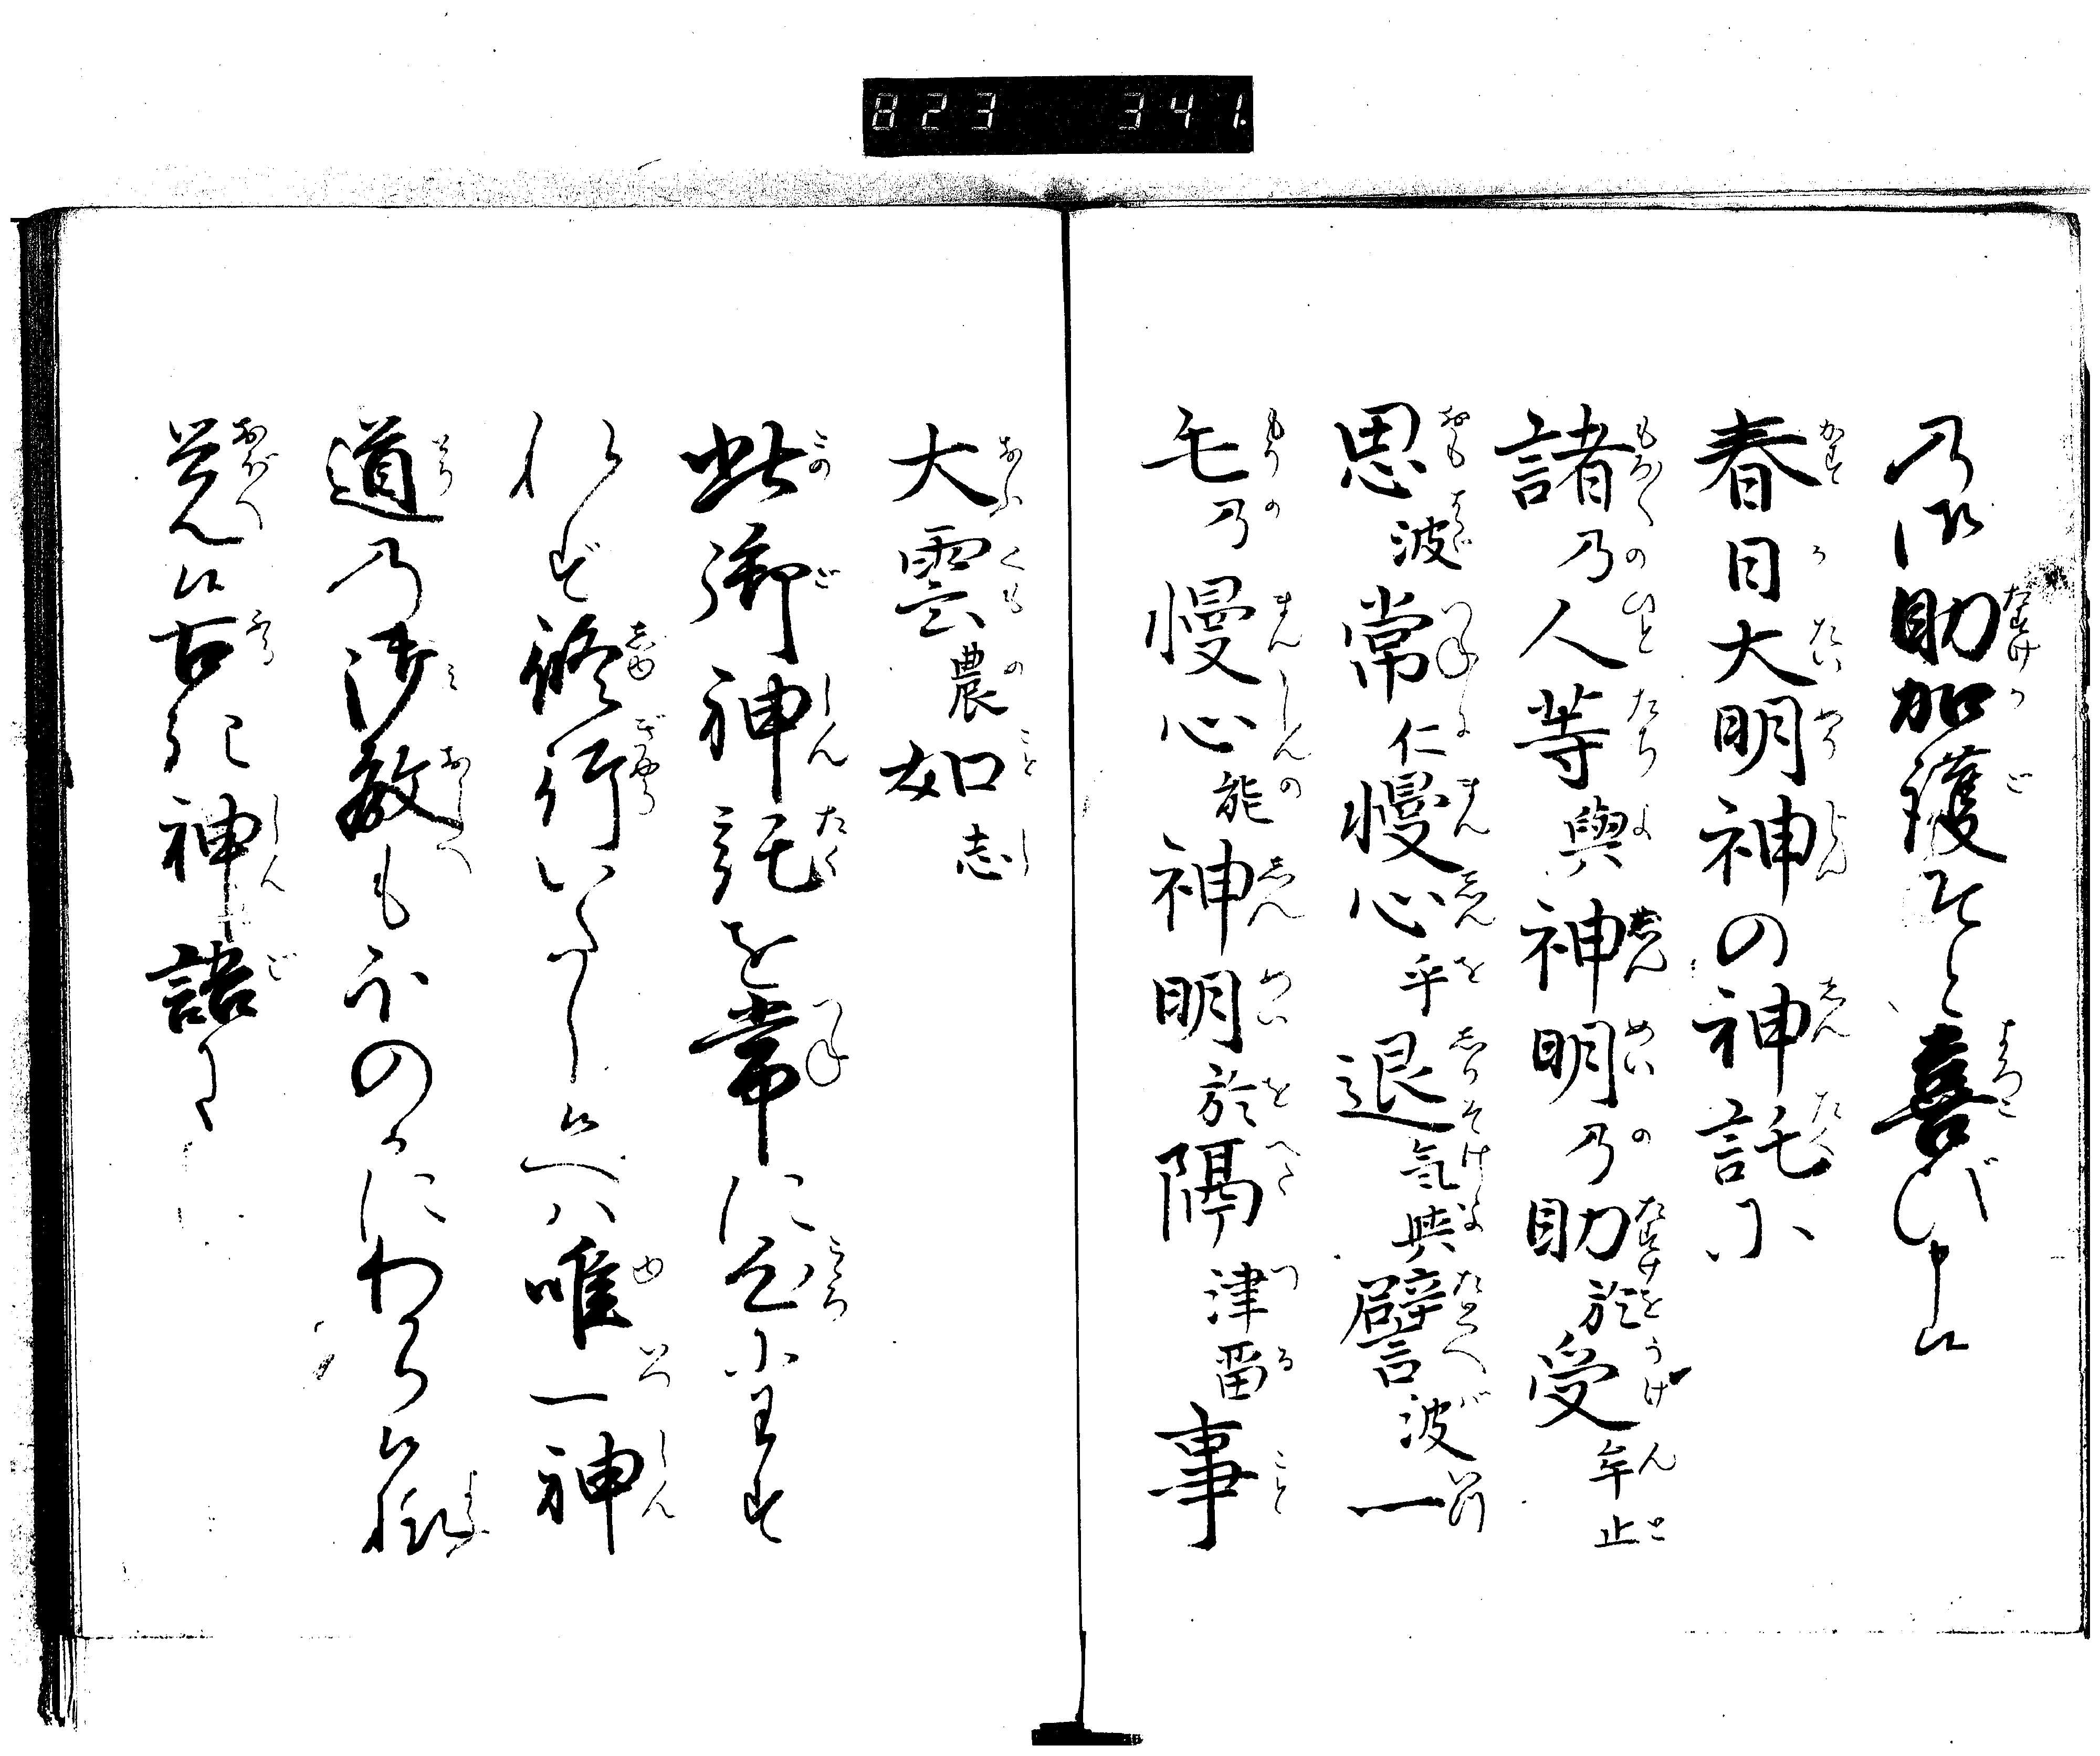 823 341.
乃御助加護ぞと喜び申候
春日大明神の神託に
諸乃人等與神明乃助於受牟止
思波常仁慢心乎退氣與譬波一
毛乃慢心能神明於隔津留事
大雲農如志
此御神託を常に心にわす
れず修行いたし候へハ唯一神
道乃御教もほのかにわかり候様
覚候古記神語に